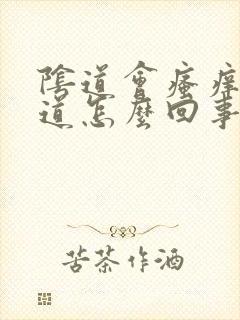 陰道會瘙癢
道怎麼回事
苦茶作酒